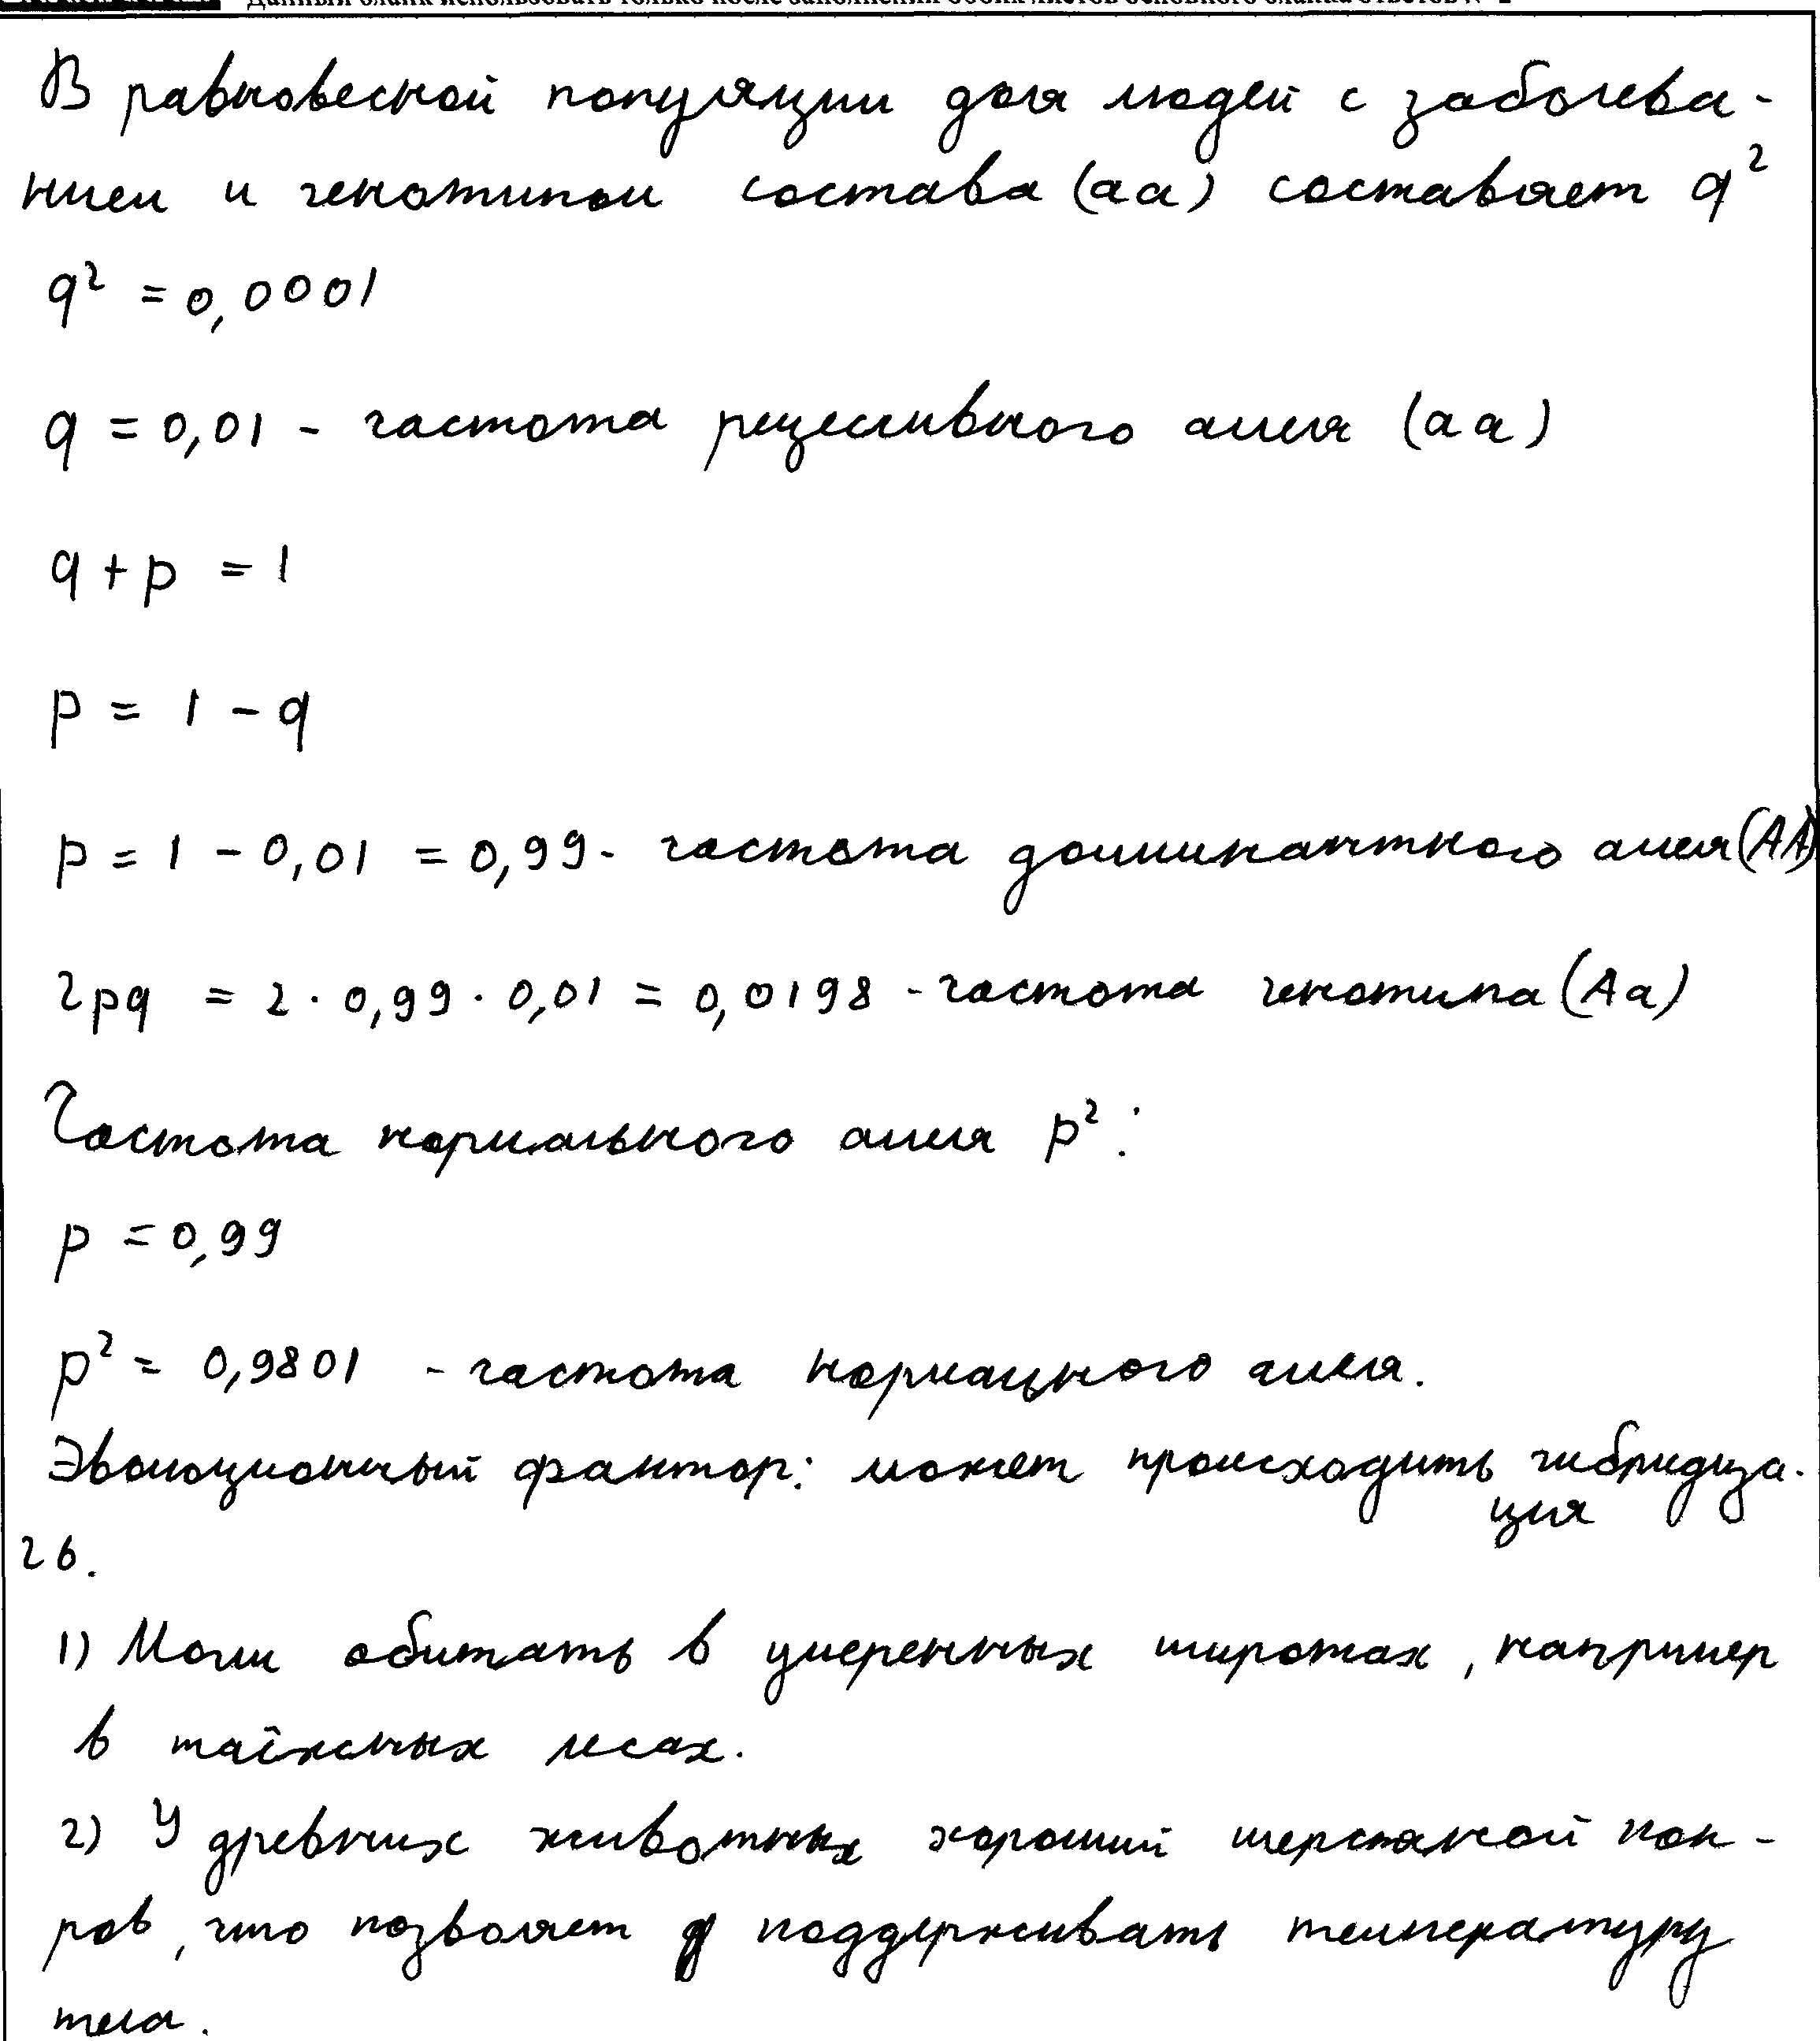 Данный бланк использовать только после заполнения обоих листов основного бланка ответов № 2
В равновесной популяции доля людей с заболева-
нием и генотипом состава (аа) составляет q²
q² = 0,0001
q = 0,01 - частота рецессивного алеля (аа)
q + p = 1
p = 1 - q
p = 1 - 0,01 = 0,99 - частота доминантного алеля (АА)
2pq = 2 · 0,99 · 0,01 = 0,0198 - частота генотипа (Аа)
Частота нормального алеля p²:
p = 0,99
p² = 0,9801 - частота нормального алеля.
Эволюционный фактор: может происходить гибридиза-
ция
26.
1) Могли обитать в умеренных широтах, например
в таёжных лесах.
2) У древних животных хороший шерстяной пок-
ров, что позволяет поддерживать температуру
тела.